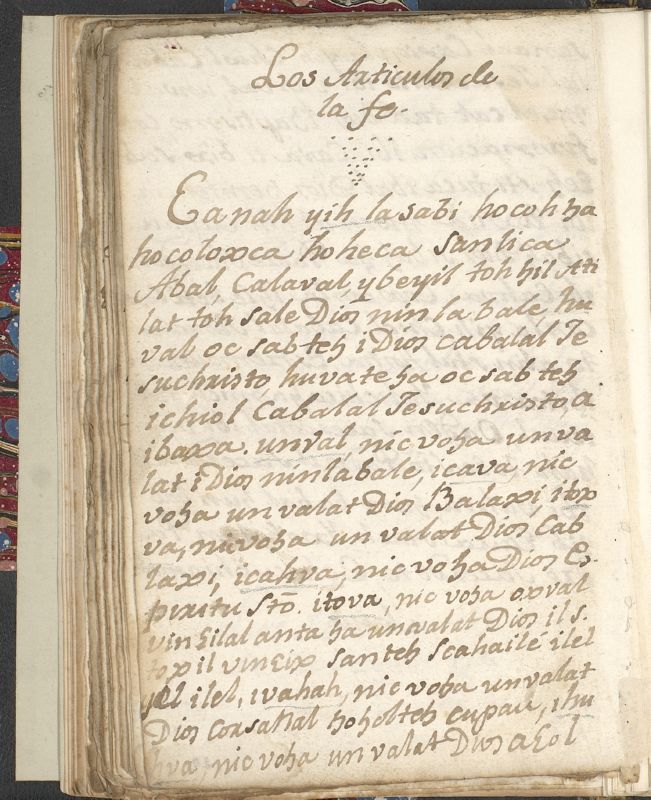 Los Articulos de
la fe.
Eanah yih la sabi hocoh ha
hocoloxca hoheca sanlica
Abal, Calaval, ybeyil toh hil Ati
lat toh sale Dios nin la bale, hu
val oc sab teh i Dios cabalal Je
suchristo, huvateha oc sab teh
ichiol Cabalal Jesuchristo, a
ibaxa. unval, nic voha unva
lat i Dios ninlabale, icava, nic
voha un valat Dios Balaxi, itox
va, nic voha un valat Dios Cab
laxi, icahva, nic voha Dios Es-
piritu Sto. itova, nic voha oxval
vinɛilal anta ha unvalat Dios il s.
toxil vinɛix santeh scahailé ilel
ilel, ivahah, nic voha unvalat
Dios Corsaltal hoholteh cupau, ihu
hva, nic voha un valat Dios aɛol